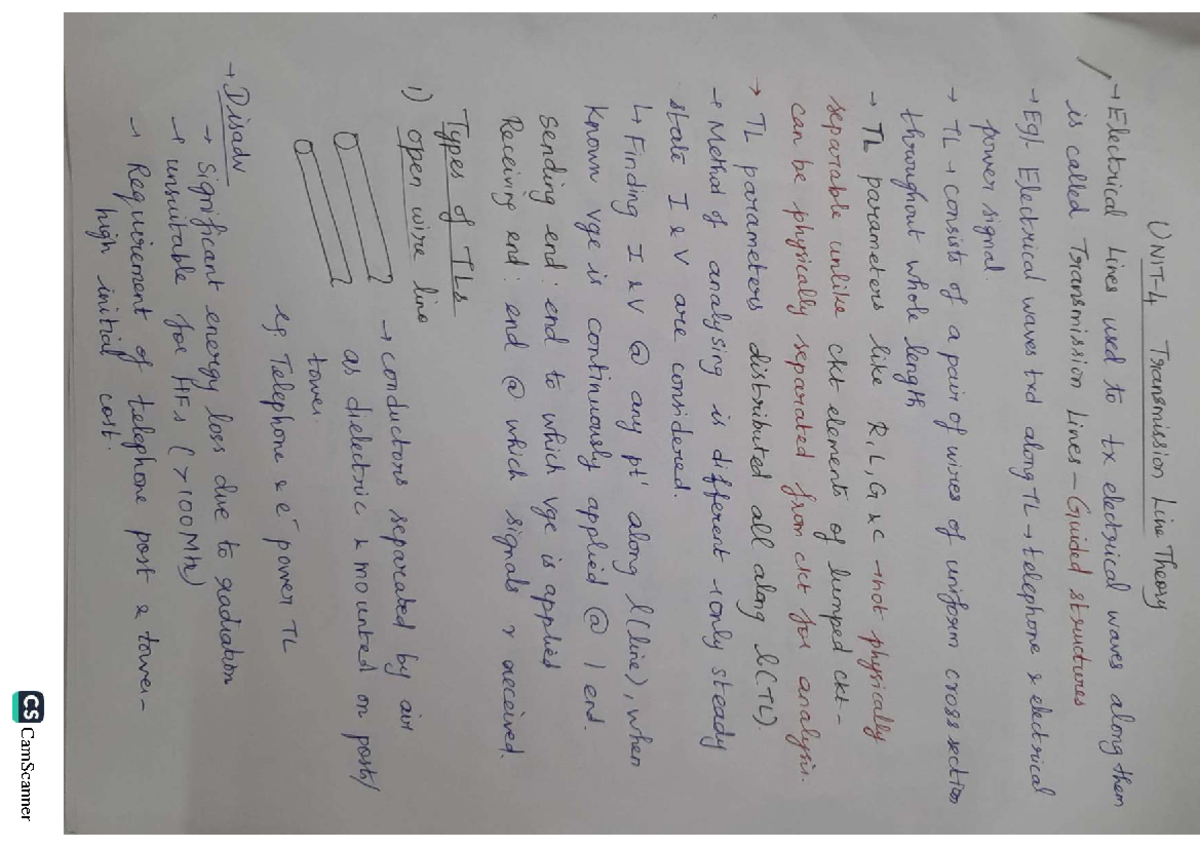 UNIT-4 Transmission Line Theory
→ Electrical Lines used to tx electrical waves along them
is called Transmission Lines - Guided structures
→ Eg). Electrical waves txd along TL → telephone & electrical
power signal.
→ TL → consists of a pair of wires of uniform cross section
throughout whole length
→ TL parameters like R, L, G & C → not physically
separable unlike ckt elements of lumped ckt -
can be physically separated from ckt for analysis.
→ TL parameters distributed all along l(TL).
→ Method of analysing is different → only steady
state I & V are considered.
↳ Finding I & V @ any pt' along l(line), when
known vge is continuously applied @ 1 end.
Sending end: end to which vge is applied
Receiving end: end @ which signals r received.
Types of TLs
1) open wire line
→ conductors separated by air
as dielectric & mounted on posts/
tower.
eg: Telephone & e⁻ power TL
→ Disadv
→ Significant energy loss due to radiation
→ unsuitable for HFs (>100MHz)
→ Requirement of telephone post & tower -
high initial cost.
CS CamScanner